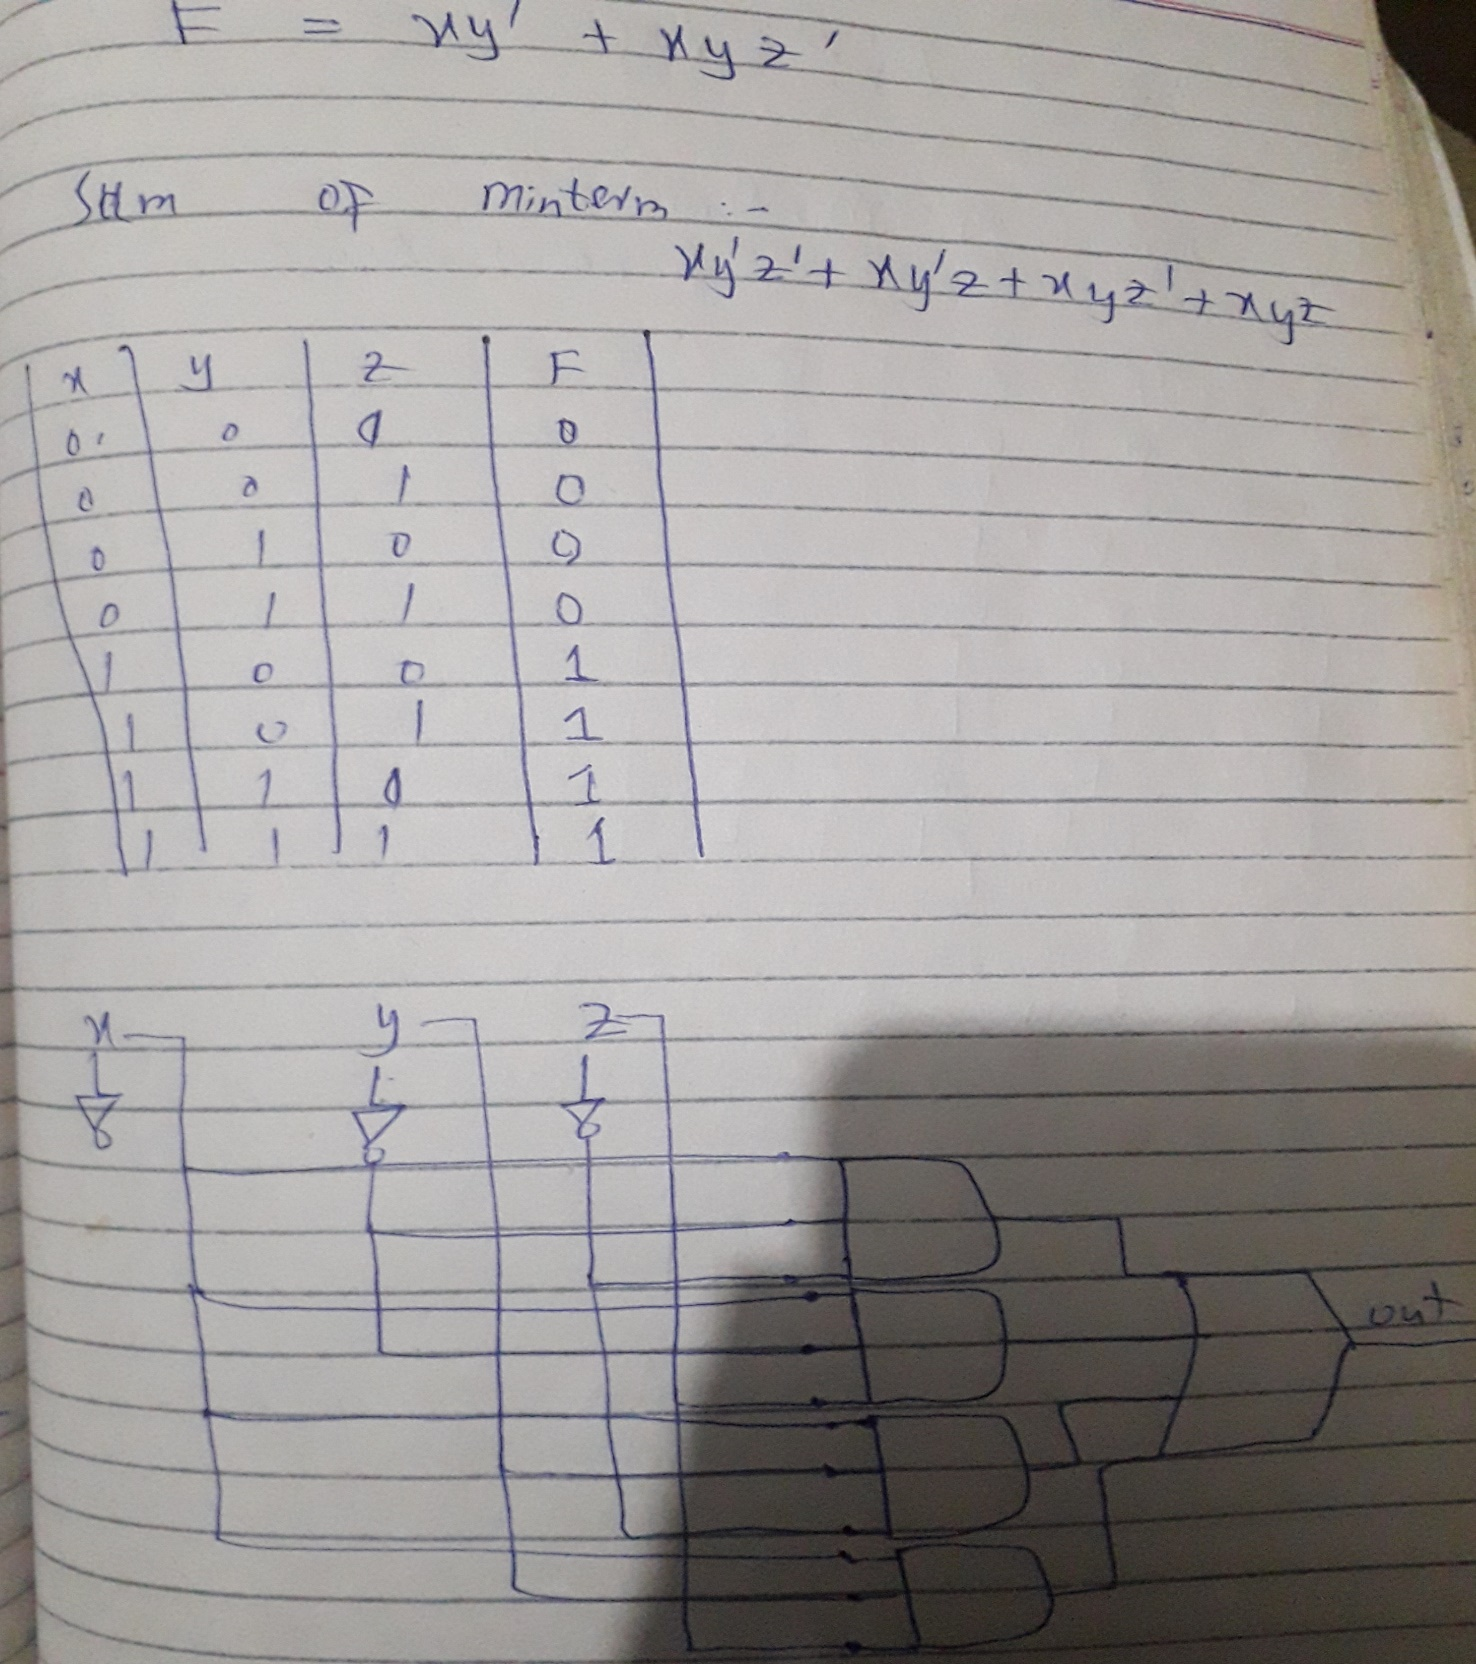 F = xy' + xyz'
Sum OF Minterm :-
xy'z' + xy'z + xyz' + xyz
x y z F
0 0 0 0
0 0 1 0
0 1 0 0
0 1 1 0
1 0 0 1
1 0 1 1
1 1 0 1
1 1 1 1
x y z
out